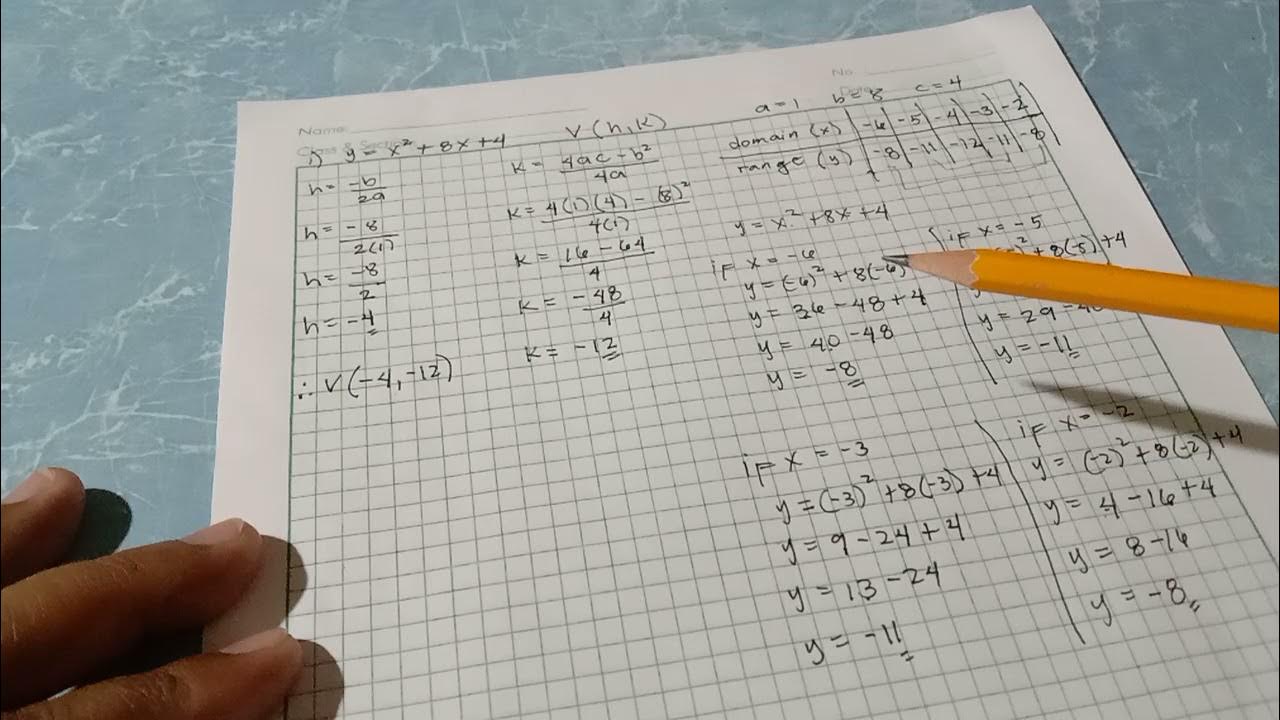 No.
Name:
a = 1 b = 8 c = 4
V (h, k)
1) y = x² + 8x + 4
h = -b/2a
h = -8/2(1)
h = -8/2
h = -4
∴ V(-4, -12)
k = 4ac - b²/4a
k = 4(1)(4) - (8)²/4(1)
k = 16 - 64/4
k = -48/4
k = -12
domain (x) -6 -5 -4 -3 -2
range (y) -8 -11 -12 -11 -8
y = x² + 8x + 4
if x = -6
y = (-6)² + 8(-6)
y = 36 - 48 + 4
y = 40 - 48
y = -8
if x = -5
² + 8(-5) + 4
y = 29 -
y = -11
if x = -3
y = (-3)² + 8(-3) + 4
y = 9 - 24 + 4
y = 13 - 24
y = -11
if x = -2
y = (-2)² + 8(-2) + 4
y = 4 - 16 + 4
y = 8 - 16
y = -8